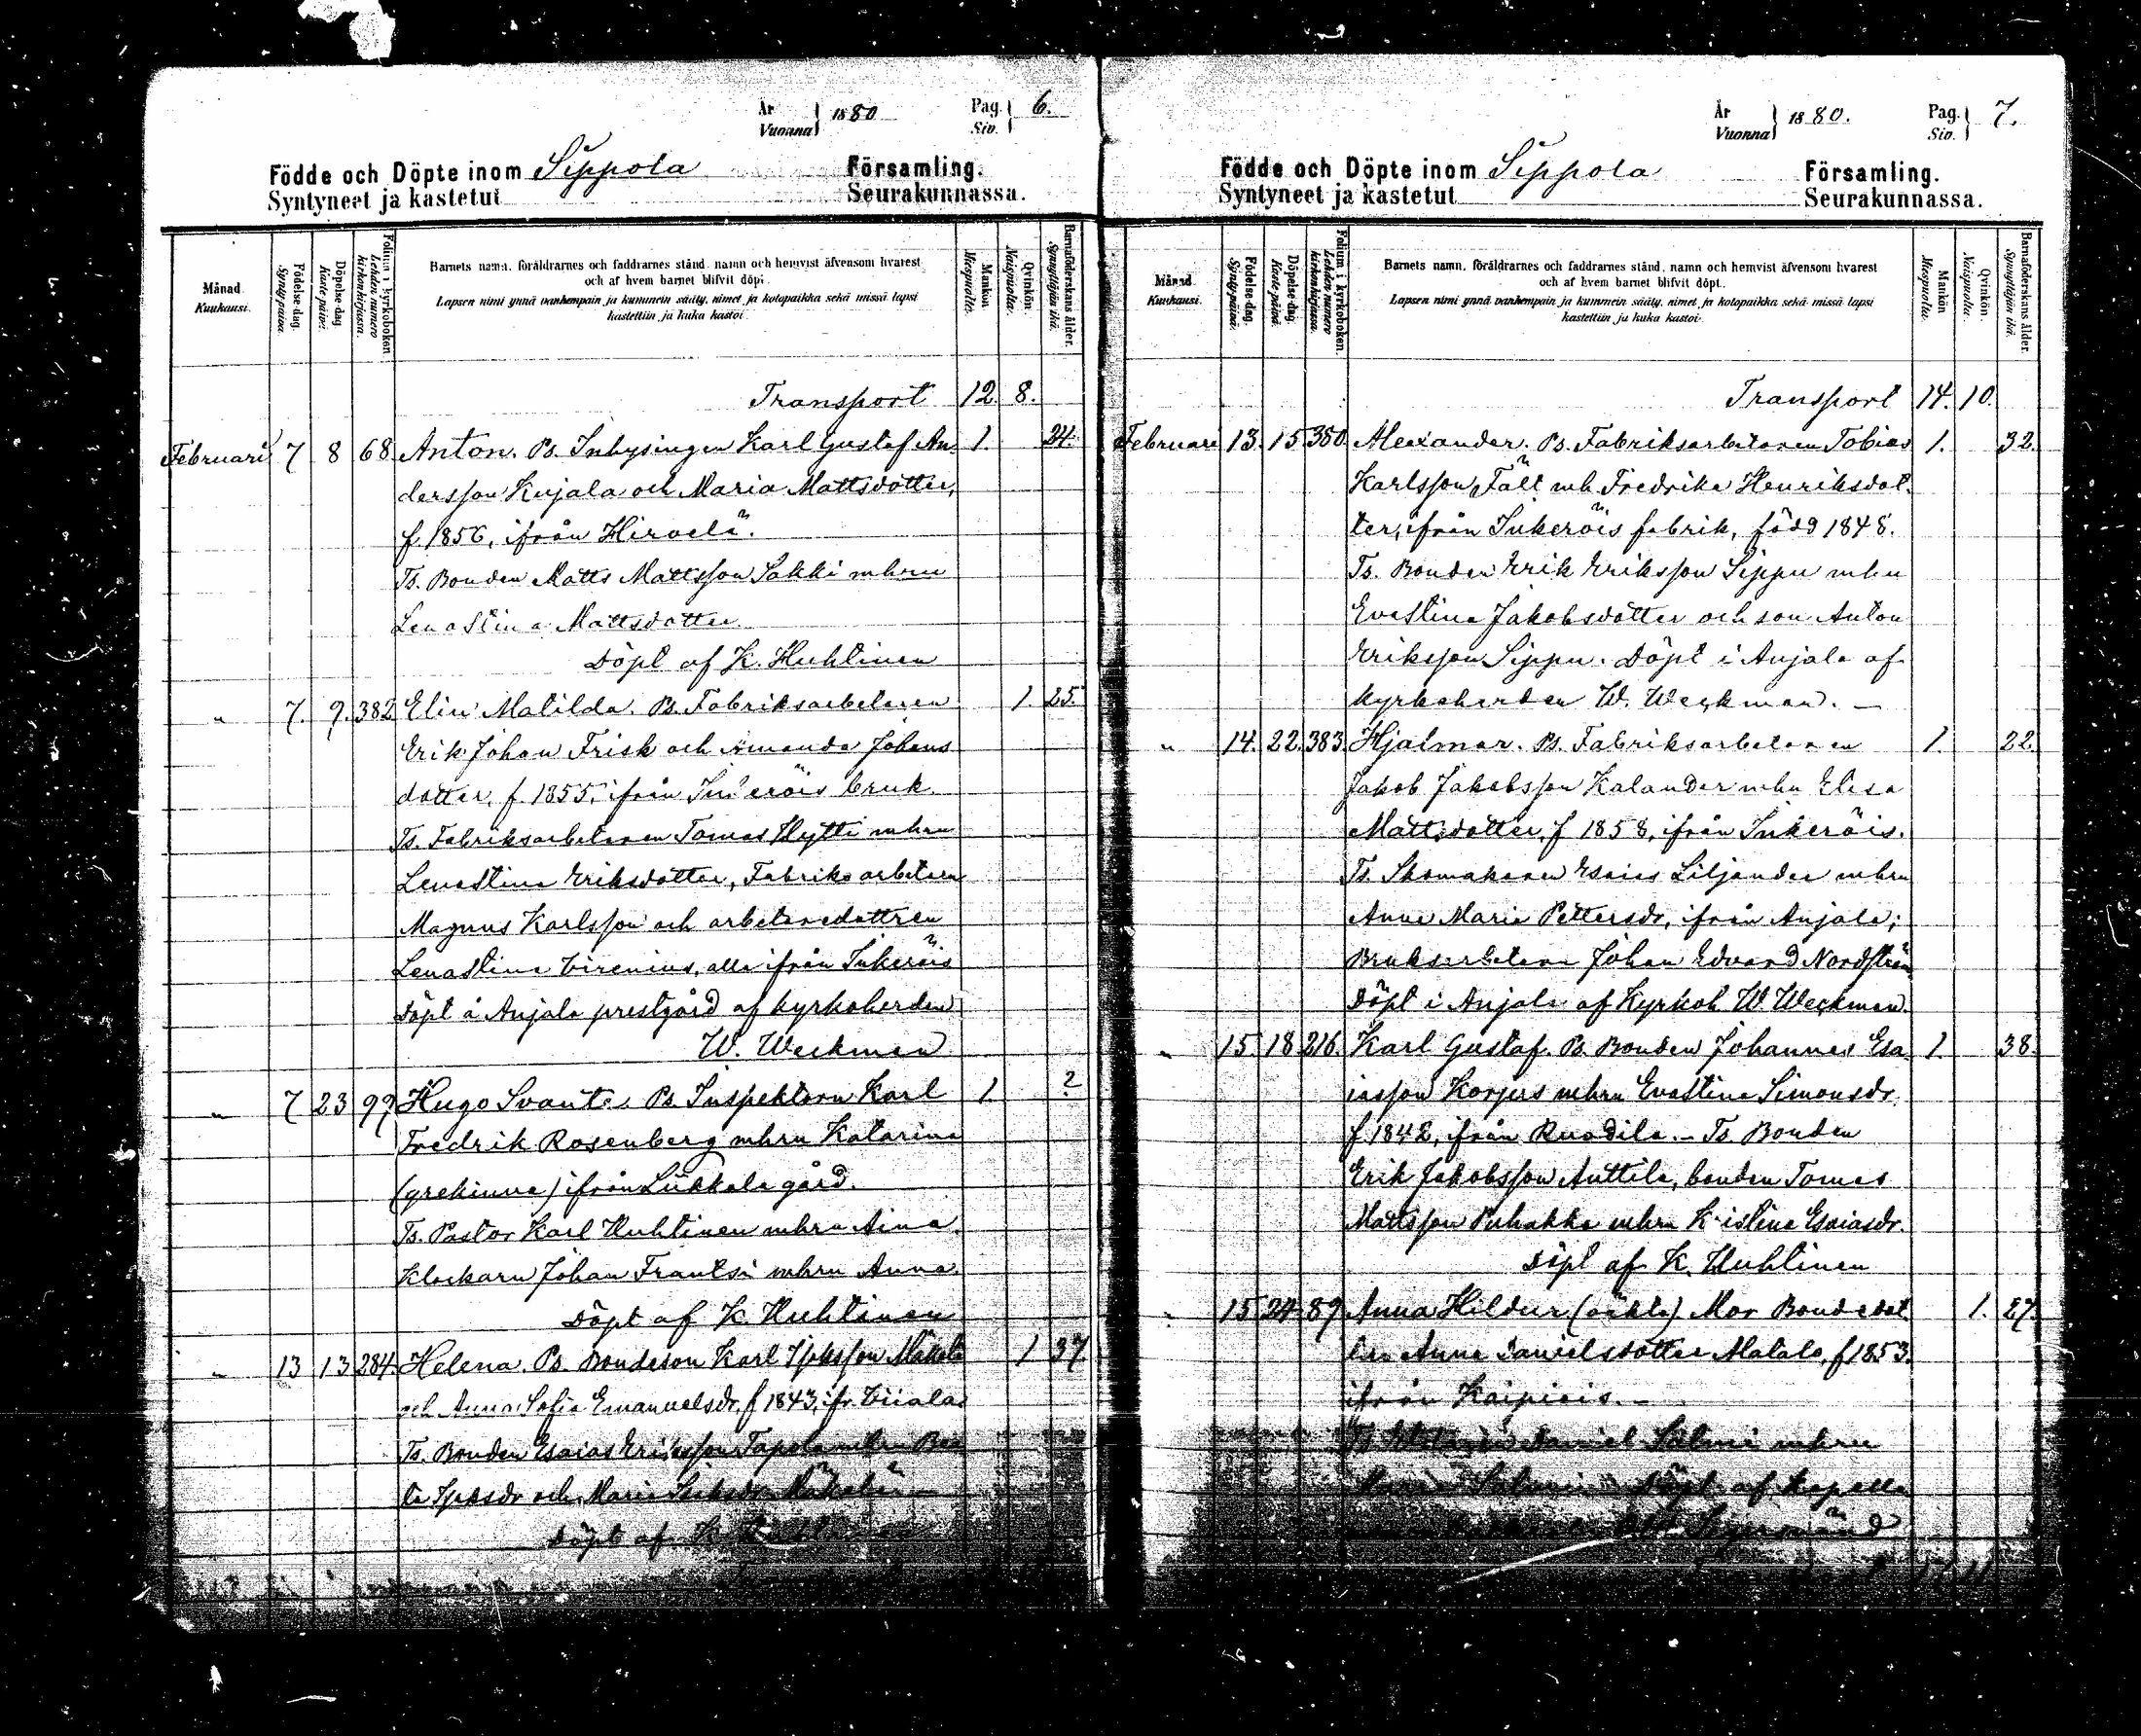 År
Vuonna
1880
Pag.
Siv.
6.
Födde och Döpte inom Sippola Församling.
Syntyneet ja kastetut Seurakunnassa.
Månad.
Kuukausi.
Födelse-dag.
Synty-päivä.
Döpelse-dag
Kaste-päivä.
Folium i kyrkoboken
Lehden numero kirkonkirjassa.
Barnets namn, föräldrarnes och faddrarnes stånd, namn och hemvist äfvensom hvarest
och af hvem barnet blifvit döpt.
Lapsen nimi ynnä vanhempain ja kummein sääty, nimet ja kotopaikka sekä missä lapsi
kastettiin ja kuka kastoi.
Mankön.
Miespuolia.
Qvinkön.
Naispuolia.
Barnaföderskans ålder.
Synnyttäjän ikä.
Transport 12. 8.
Februari 7 8 68 Anton. Ps. Inhysingen Karl Gustaf An- 1. 24.
dersson Kujala och Maria Mattsdotter,
f. 1856, ifrån Hirvelä.
Ts. Bonden Matts Mattsson Sakki mhru
Lenastina Mattsdotter
Döpt af K. Huhtinen
" 7. 9. 382 Elin Matilda. Ps. Fabriksarbetaren 1. 25.
Erik Johan Frisk och Amanda Johans
dotter, f. 1855, ifrån Inkeröis bruk
Ts. Fabriksarbetaren Tomas Hytti mhru
Lenastina Eriksdotter, Fabriksarbetaren
Magnus Karlsson och arbetaredottren
Lenastina Virenius, alla ifrån Inkeröis
Döpt å Anjala prestgård af kyrkoherden
W. Weckman
" 7 23 99 Hugo Svante. Ps. Inspektorn Karl 1 ?
Fredrik Rosenberg mhru Katarina
(grekinna) ifrån Liikkala gård.
Ts. Pastor Karl Huhtinen mhru Aina.
Klockarn Johan Frantsi mhru Anna.
Döpt af K. Huhtinen
" 13 13 284 Helena. Ps. Bondeson Karl Mäkelä 1 37.
och Anna Sofia Emanuelsdr, f 1843, ifr. Viiala
Ts. Bonden Esaias Eriksson Tapola mhru Bea
ta och Maria Mäkelä
Döpt af K. Huhtinen
År
Vuonna
1880.
Pag.
Siv.
7.
Födde och Döpte inom Sippola Församling.
Syntyneet ja kastetut Seurakunnassa.
Månad
Kuukausi.
Födelse-dag.
Synty-päivä.
Döpelse-dag.
Kaste-päivä.
Folium i kyrkoboken.
Lehden numero kirkonkirjassa.
Barnets namn, föräldrarnes och faddrarnes stånd, namn och hemvist äfvensom hvarest
och af hvem barnet blifvit döpt.
Lapsen nimi ynnä vanhempain ja kummein sääty, nimet ja kotopaikka sekä missä lapsi
kastettiin ja kuka kastoi.
Mankön
Miespuolia.
Qvinkön.
Naispuolia.
Barnaföderskans ålder.
Synnyttäjän ikä.
Transport 14. 10.
Februari 13. 15. 380. Alexander. Ps. Fabriksarbetaren Tobias 1. 32.
Karlsson Fält mh. Fredrika Henriksdot-
ter, ifrån Inkeröis fabrik, född 1848.
Ts. Bonden Erik Eriksson Sippu mhu
Evastina Jakobsdotter och son Anton
Eriksson Sippu. Döpt i Anjala af
kyrkoherden W. Weckman. —
" 14. 22. 383. Hjalmar. Ps. Fabriksarbetaren 1. 22.
Jakob Jakobsson Kalander mhu Elisa
Mattsdotter, f 1858, ifrån Inkeröis.
Ts. Skomakaren Esaias Liljander mhru
Anna Maria Pettersdr, ifrån Anjala;
Bruksarbetare Johan Edvard Nordström
Döpt i Anjala af Kyrkoh W. Weckman.
" 15. 18. 216. Karl Gustaf. Ps. Bonden Johannes Esa 1. 38.
iasson Korpus mhru Evastina Simonsdr.
f. 1842, ifrån Ruodila. — Ts Bonden
Erik Jakobsson Anttila, bonden Tomas
Mattsson Puhakka mhru Kristina Esaiasdr.
Döpt af K. Huhtinen
" 15 24 89 Anna Hildur (oäkta) Mor Bondedot 1. 27.
Anna Danielsdotter Matala, f 1853.
ifrån Kaipiais. —
Ts Daniel Salmi mhru
Maria Döpt af Kapella